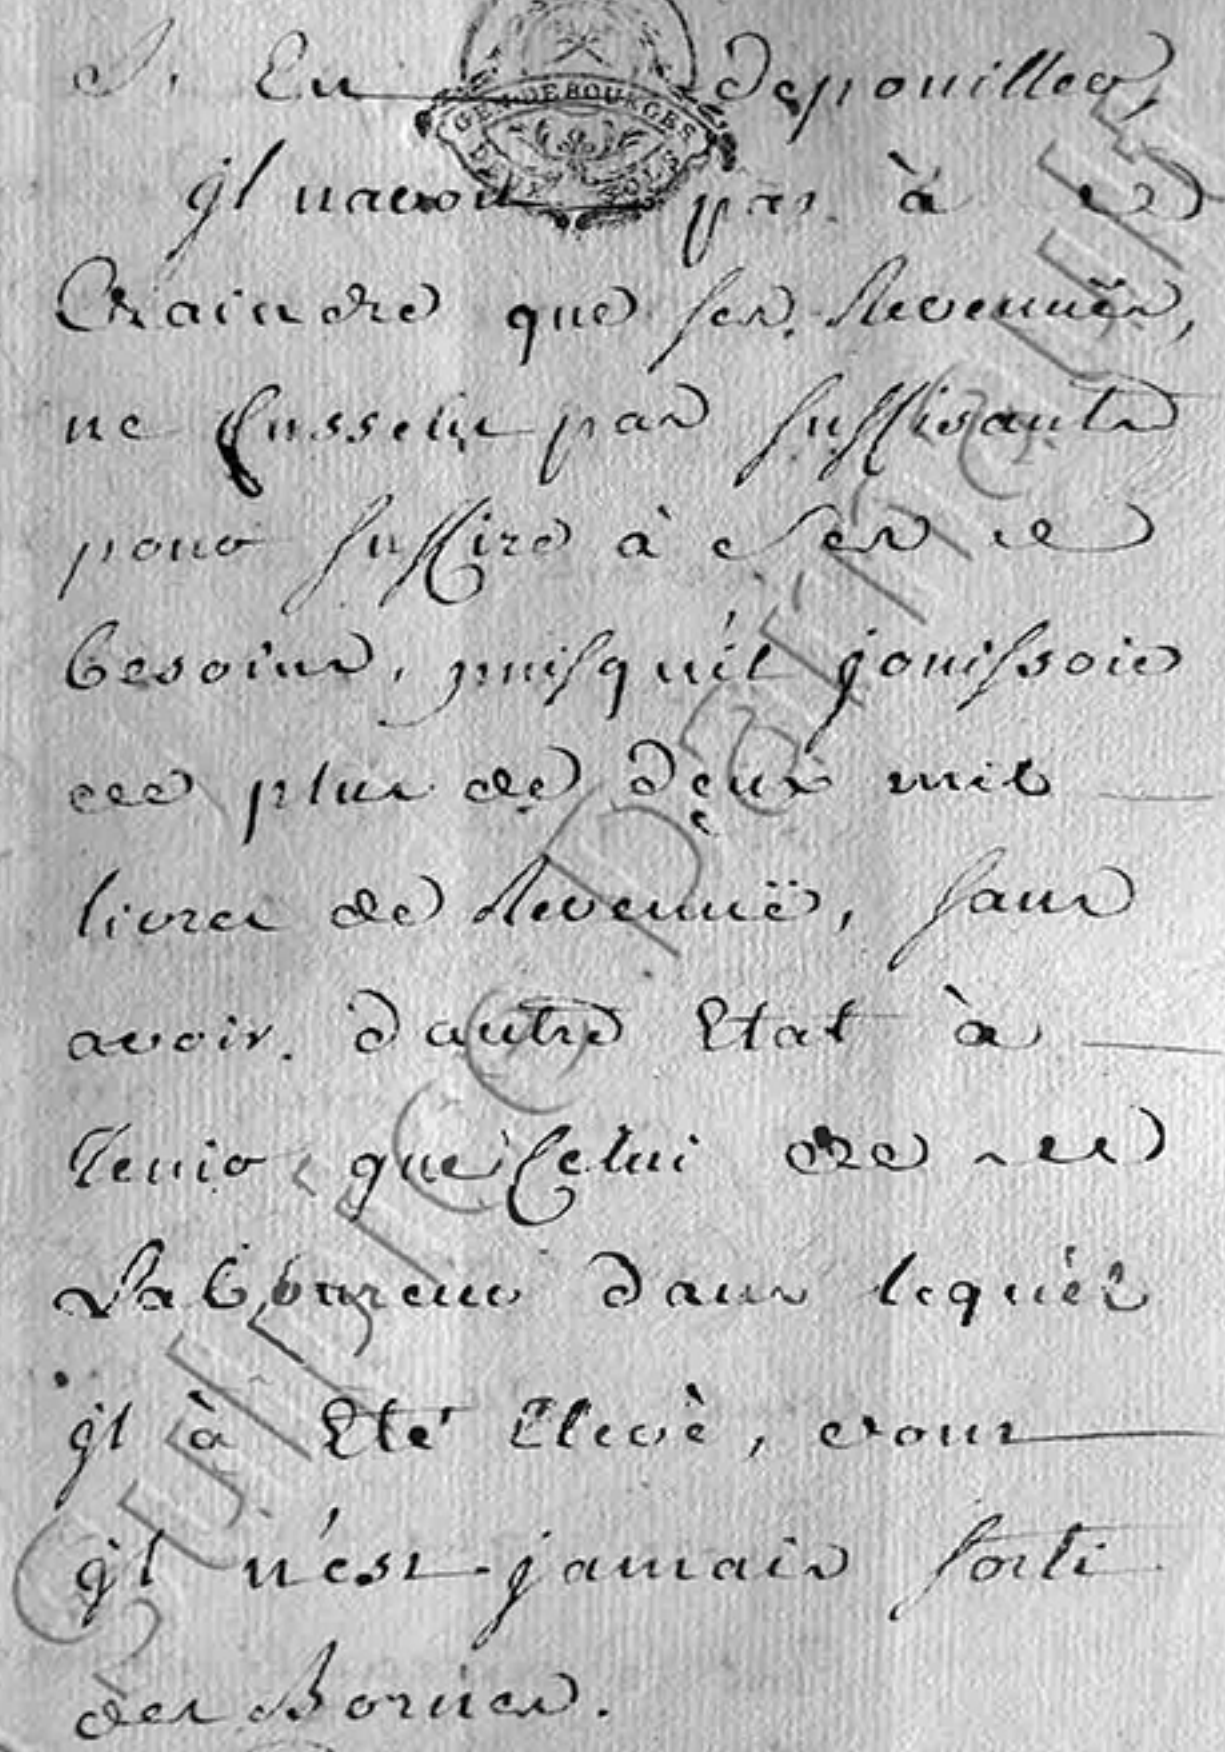 S'en depouiller,
GEN. DE BOURGES
jl navoit pas à
Craindre que ses Revenües,
ne fussent pas suffisants
pour suffire à Ses
besoins, puisqu'il jouissoit
de plus de deux mil
livres de Revenuë, sans
avoir d'autre Etat à
Tenir que Celui de
Laboureur dans lequel
jl à Eté Elevé, dont
jl n'est jamais sorti
des Bornes.